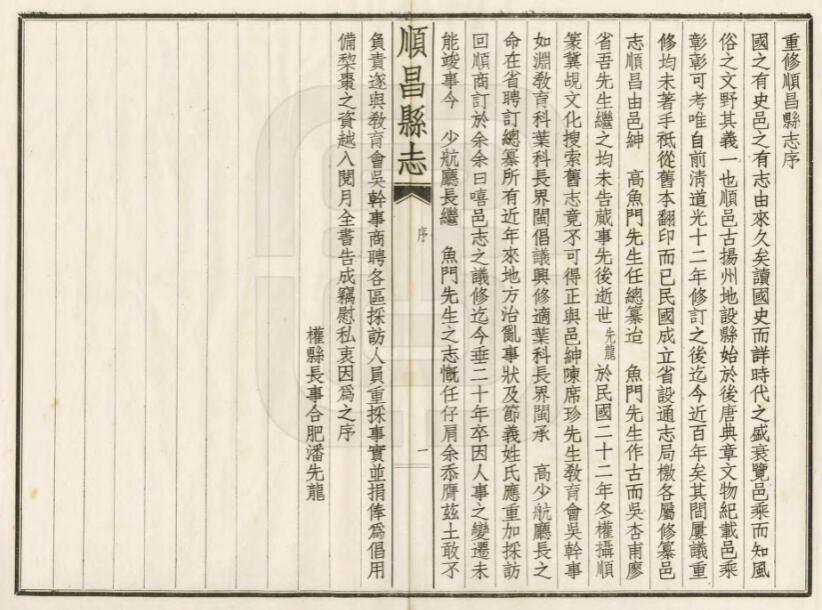 重修順昌縣志序
國之有史邑之有志由來久矣讀國史而詳時代之盛衰覽邑乘而知風
俗之文野其義一也順邑古揚州地設縣始於後唐典章文物紀載邑乘
彰彰可考唯自前清道光十二年修訂之後迄今近百年矣其間屢議重
修均未著手祗從舊本翻印而已民國成立省設通志局檄各屬修纂邑
志順昌由邑紳 高魚門先生任總纂迨 魚門先生作古而吳杏甫廖
省吾先生繼之均未告蕆事先後逝世先龍於民國二十二年冬權攝順
篆冀覘文化搜索舊志竟不可得正與邑紳陳席珍先生敎育會吳幹事
如淵敎育科葉科長界閩倡議興修適葉科長界閩承 高少航廳長之
命在省聘訂總纂所有近年來地方治亂事狀及節義姓氏應重加採訪
回順商訂於余余曰嘻邑志之議修迄今垂二十年卒因人事之變遷未
能竣事今 少航廳長繼 魚門先生之志慨任仔肩余忝膺茲土敢不
順昌縣志
序
一
負責遂與敎育會吳幹事商聘各區採訪人員重採事實並捐俸爲倡用
備棃棗之資越入閱月全書告成竊慰私衷因爲之序
權縣長事合肥潘先龍